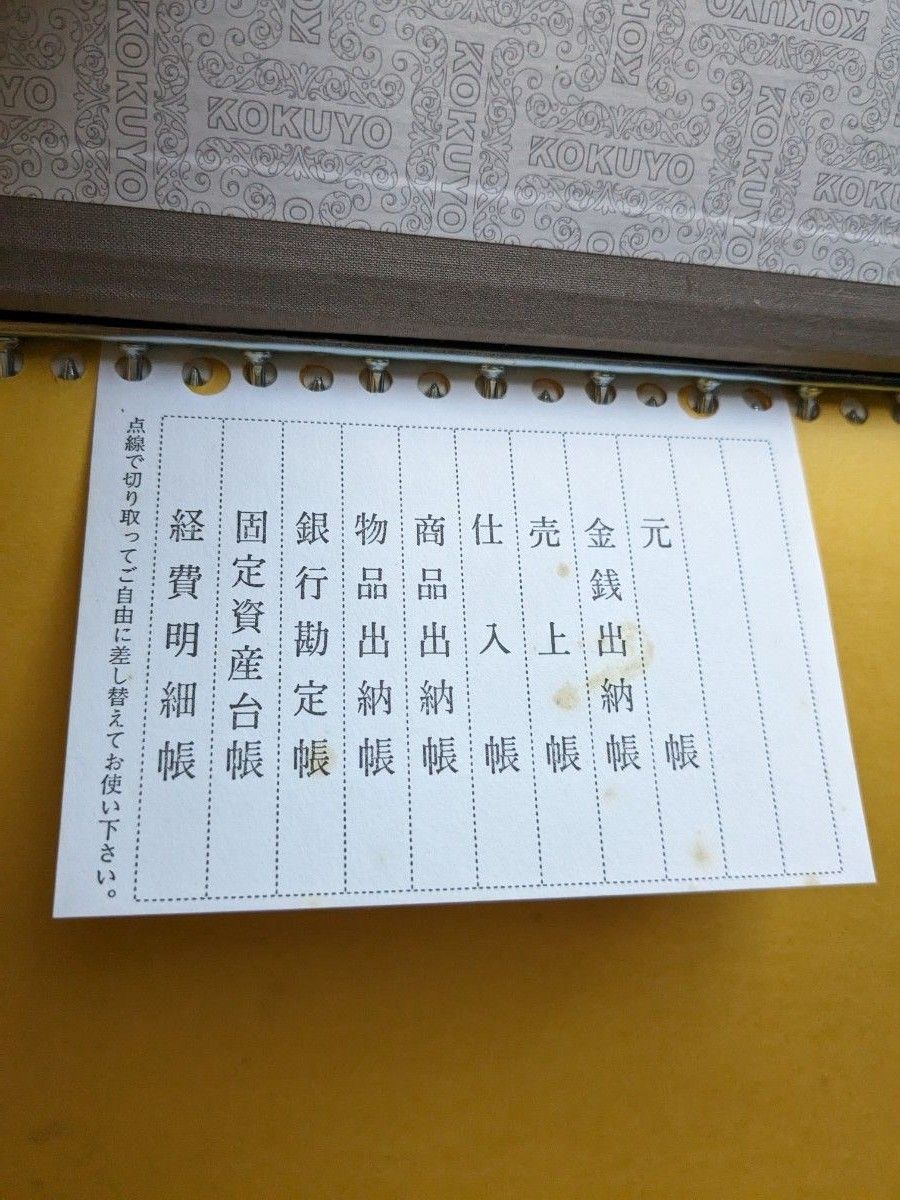 KOKUYO
KOKUYO
KOKUYO
KOKUYO
KOKUYO
KOKUYO
KOKUYO
元帳
金銭出納帳
売上帳
仕入帳
商品出納帳
物品出納帳
銀行勘定帳
固定資産台帳
経費明細帳
点線で切り取ってご自由に差し替えてお使い下さい。